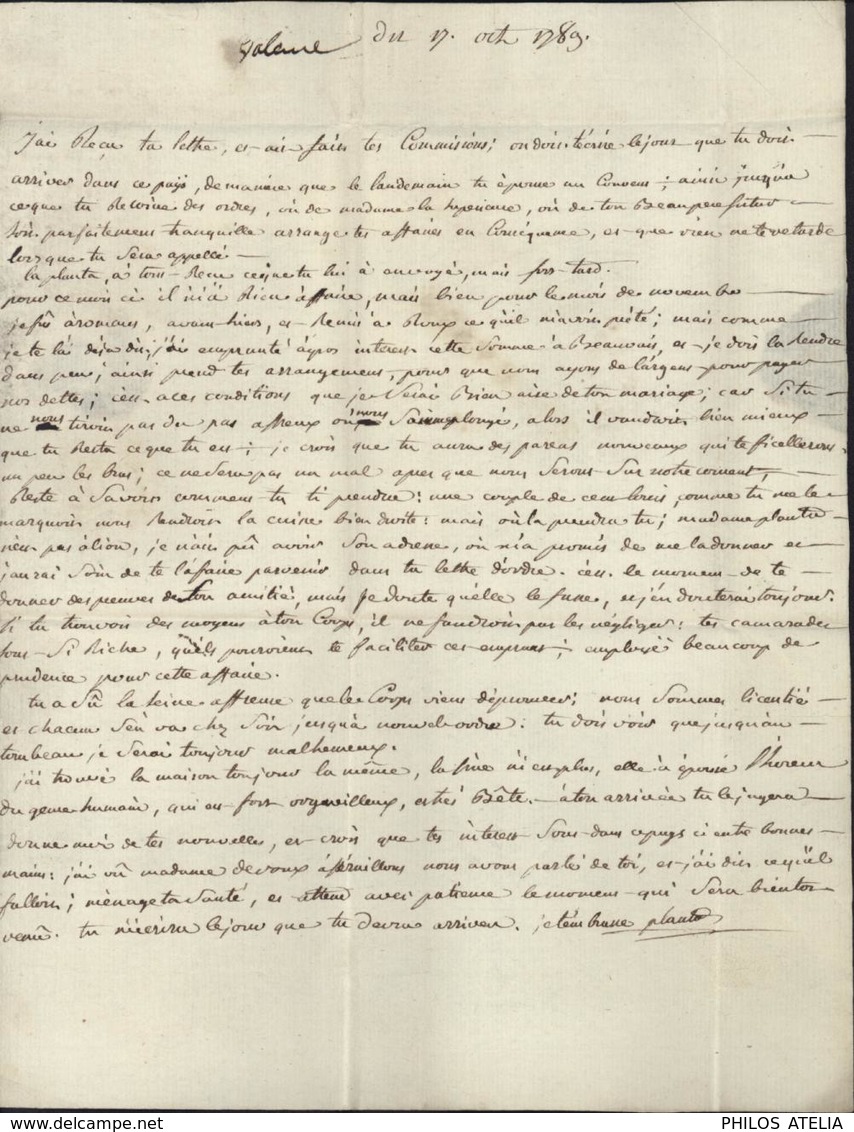 valence du 17. oct 1789.
J'ai Reçu ta lettre, et ait fait tes Commissions; on doit t'écrire le jour que tu dois
arriver dans ce païs, de manière que le landemain tu épouse au Couvent; ainsi jusqu'à
ceque tu Reçoive des ordres, où de madame la superieure, où de ton Beaupere futur
soit parfaitement tranquille arrange tes affaires en Conséquence, et que rien ne te retarde
lorsque tu sera appellé
la planta, à tout Reçu ceque tu lui à envoyé, mais fort tard.
pour ce mois ci il n'i à Rien à faire, mais bien pour le mois de novembre
je fû à romans, avant-hier, et Remis à Roux ce qu'il m'avoit prété; mais comme
je te l'ai déja dit, j'ai emprunté à gros interest cette somme à Beauvais, et je dois la Rendre
dans peu; ainsi prend tes arrangement, pour que nous ayons de l'argent pour payer
nos dettes; c'est à ces conditions que je serai Bien aise de ton mariage; car si tu
ne nous tiroit pas du pas affreux où nous sommes plongé, alors il vaudroit bien mieux
que tu Resta ce que tu est; je crois que tu aura des parens nouveaux qui te ficelleront
un peu les bras; ce ne sera pas un mal après que nous serons sur notre
Reste à savoir comment tu ti prendra: une couple de cent louis, comme tu me le
marquoit nous Rendroit la cuisse bien droite: mais où la prendra tu; madame planta
n'est pas à lion, je n'ait pû avoir son adresse, on m'a promis de me la donner et
j'aurai soin de te la faire parvenir dans ta lettre d'ordre. c'est le moment de te
donner des preuves de son amitié, mais je doute quélle le fasse, et j'en douterai toujours.
si tu trouvoit des moyens à ton Corps, il ne faudroit pas les négliger: tes camarades
sont si Riche, qu'els pourroient te faciliter cet emprunt; employé beaucoup de
prudence pour cette affaire.
tu a sû la scène affreuse que le Corps vient d'éprouver; nous sommes licentié
et chacun s'en va chez soi jusqu'à nouvel ordre: tu doit voir que jusqu'au
tombeau je serai toujours malheureux.
j'ai trouvé la maison toujours la même, la fine n'i est plus, elle à épousé l'horreur
du genre humain, qui est fort orgueilleux, et très Bête. à ton arrivée tu le jugera
donne moi de tes nouvelles, et crois que tes interest sont dans ce pays ci entre bonnes
mains: j'ai vû madame devoux nous avons parlé de toi, et j'ai dit ce qu'il
falloit; ménage ta santé, et attend avec patience le moment qui sera bientot
venû. tu m'écrira le jour que tu devra arriver. je t'embrasse planta
PHILOS ATELIA